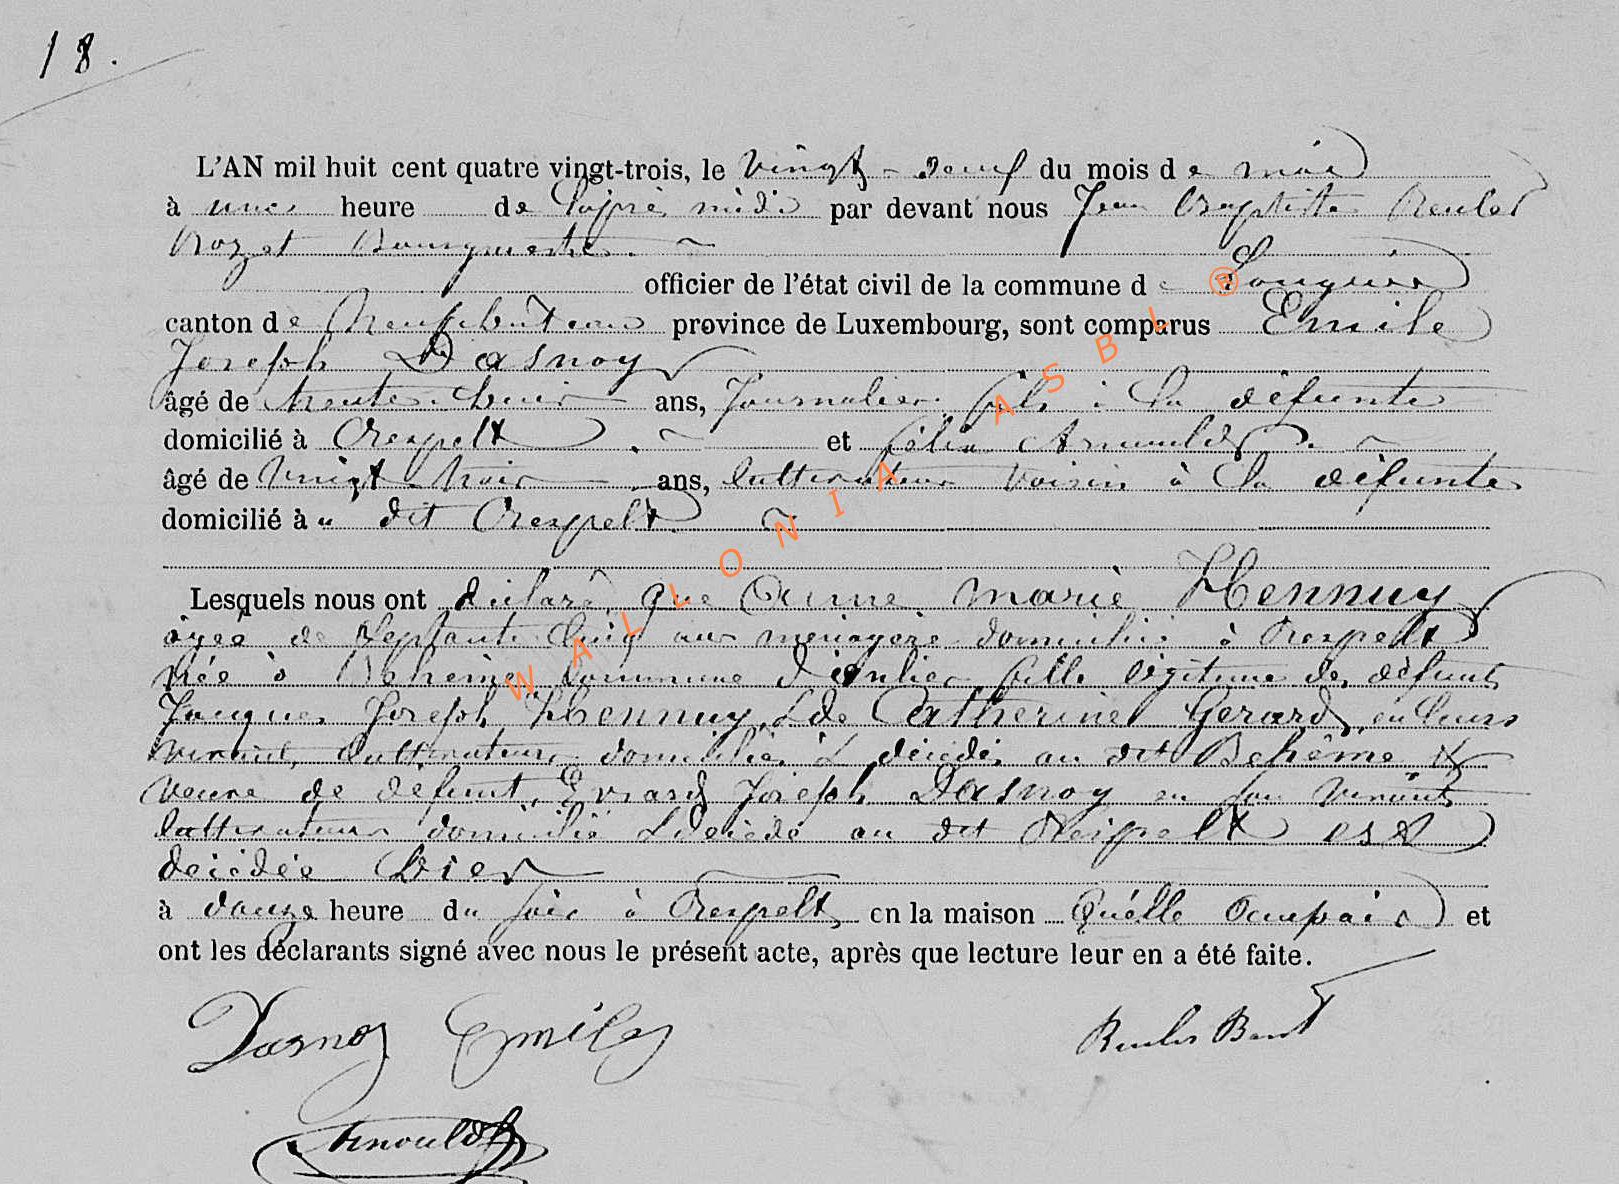 18.
L'AN mil huit cent quatre vingt-trois, le vingt-neuf du mois de mai
à une heure de l'après midi par devant nous Jean Baptiste Reuler
Rozet Bourgmestre.
officier de l'état civil de la commune de Longlier
canton de Neufchâteau province de Luxembourg, sont comparus Emile
Joseph Dasnoy
âgé de trente-huit ans, Journalier fils à la défunte
domicilié à Respelt et Célin Arnould
âgé de vingt trois ans, cultivateur voisin à la défunte
domicilié à u dit Respelt
Lesquels nous ont déclaré que Anne marie Hennuy
agée de septante cinq ans ménagère domiciliée à Respelt
née à Behème commune d'anlier fille légitime des défunts
Jacques Joseph Hennuy & de Catherine Gerard en leurs
vivant cultivateurs domiciliés & décédés au dit Behême &
veuve de défunt Evrard Joseph Dasnoy en son vivant
cultivateur domicilié & décédé au dit Respelt est
décédée hier
à douze heure du soir à Respelt en la maison qu'élle occupait et
ont les déclarants signé avec nous le présent acte, après que lecture leur en a été faite.
Dasnoy Emile
Arnould
WALLONIA ASBL ®